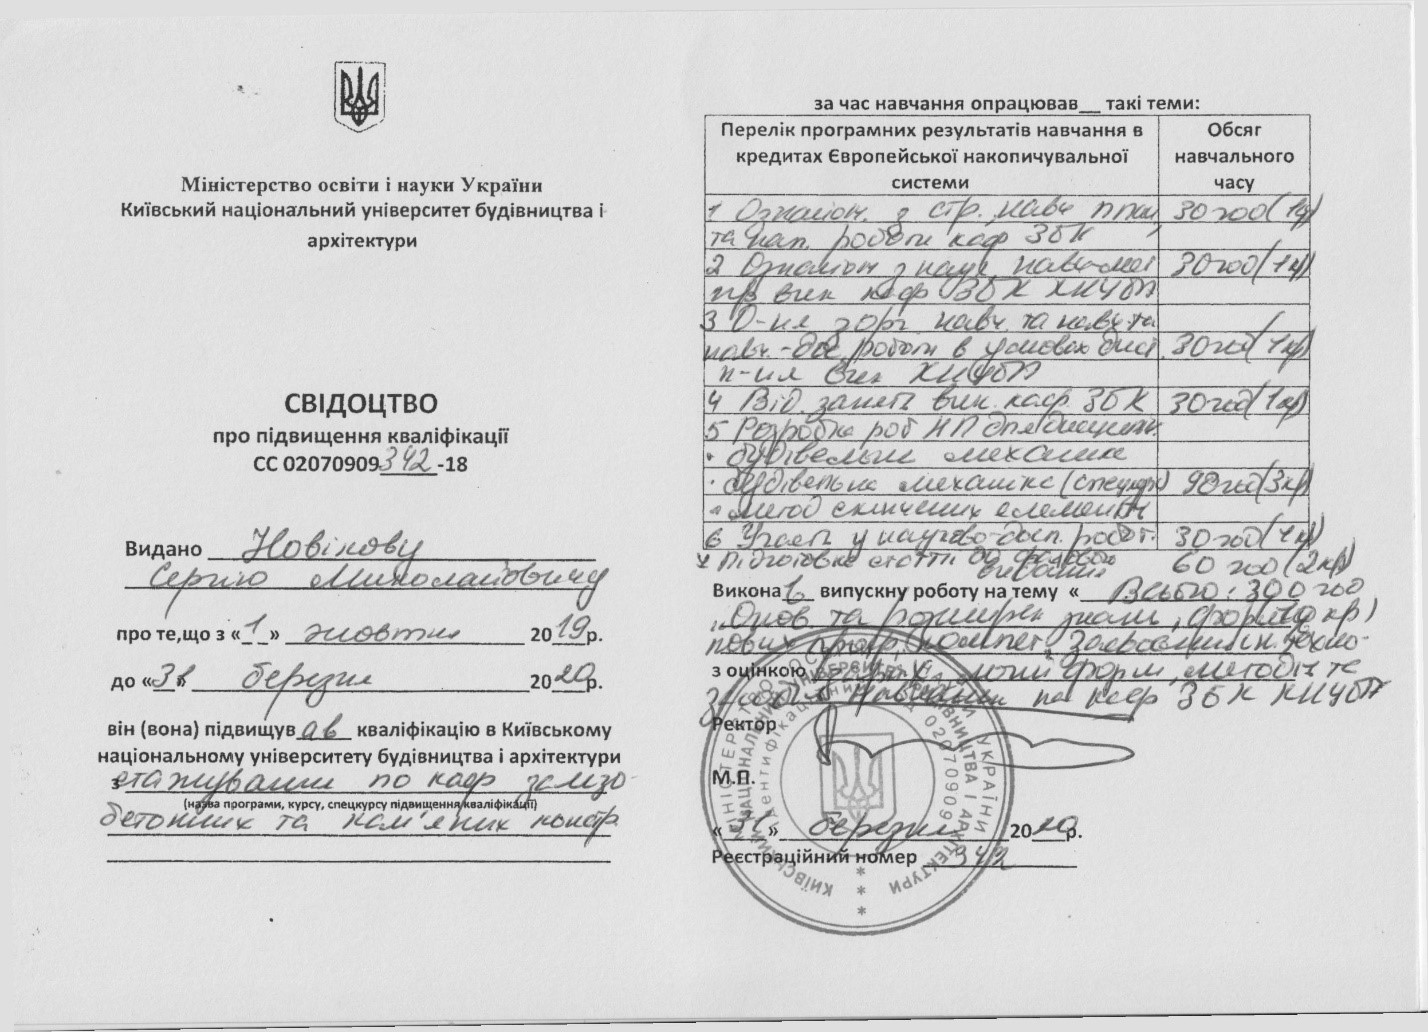 Міністерство освіти і науки України
Київський національний університет будівництва і
архітектури
СВІДОЦТВО
про підвищення кваліфікації
СС 02070909 342 -18
Видано Новікову
Сергію Миколайовичу
про те,що з «1» жовтня 2019р.
до «31» березня 2020р.
він (вона) підвищув ав кваліфікацію в Київському
національному університету будівництва і архітектури
з стажування по каф залізо-
(назва програми, курсу, спецкурсу підвищення кваліфікації)
бетонних та кам'яних констр.
за час навчання опрацював__ такі теми:
Перелік програмних результатів навчання в
кредитах Європейської накопичувальної
системи
Обсяг
навчального
часу
1 Ознайом. з стр., навч план, 30 год (1кр)
та нап. роботи каф ЗБК
2 Ознайом з наук, навч-мет 30 год (1кр)
вик каф ЗБК КНУБА
3 О-ня з орг навч. та
роботи в умовах дист. 30 год (1кр)
вик КНУБА
4 Від. занять вик. каф. ЗБК 30 год (1кр)
5 Розробка роб НП для дисциплін:
• будівельна механіка
• будівельна механіка (спецкурс) 90 год (3кр)
• метод скінчених елементів
6 Участь у науково-досл. робот. 30 год (1кр)
7 Підготовка статті до фахового видання 60 год (2кр)
Викона в випускну роботу на тему « Всього: 300 год
„Онов. та розширен знань, форм (10 кр)
нових проф. компет,
з оцінкою форм, методів та
навчання по каф ЗБК КНУБА
Ректор
М.П.
«31» березня 2020р.
Реєстраційний номер 342
МІНІСТЕРСТВО ОСВІТИ І НАУКИ УКРАЇНИ
КИЇВСЬКИЙ НАЦІОНАЛЬНИЙ УНІВЕРСИТЕТ БУДІВНИЦТВА І АРХІТЕКТУРИ
Ідентифікаційний код 02070909